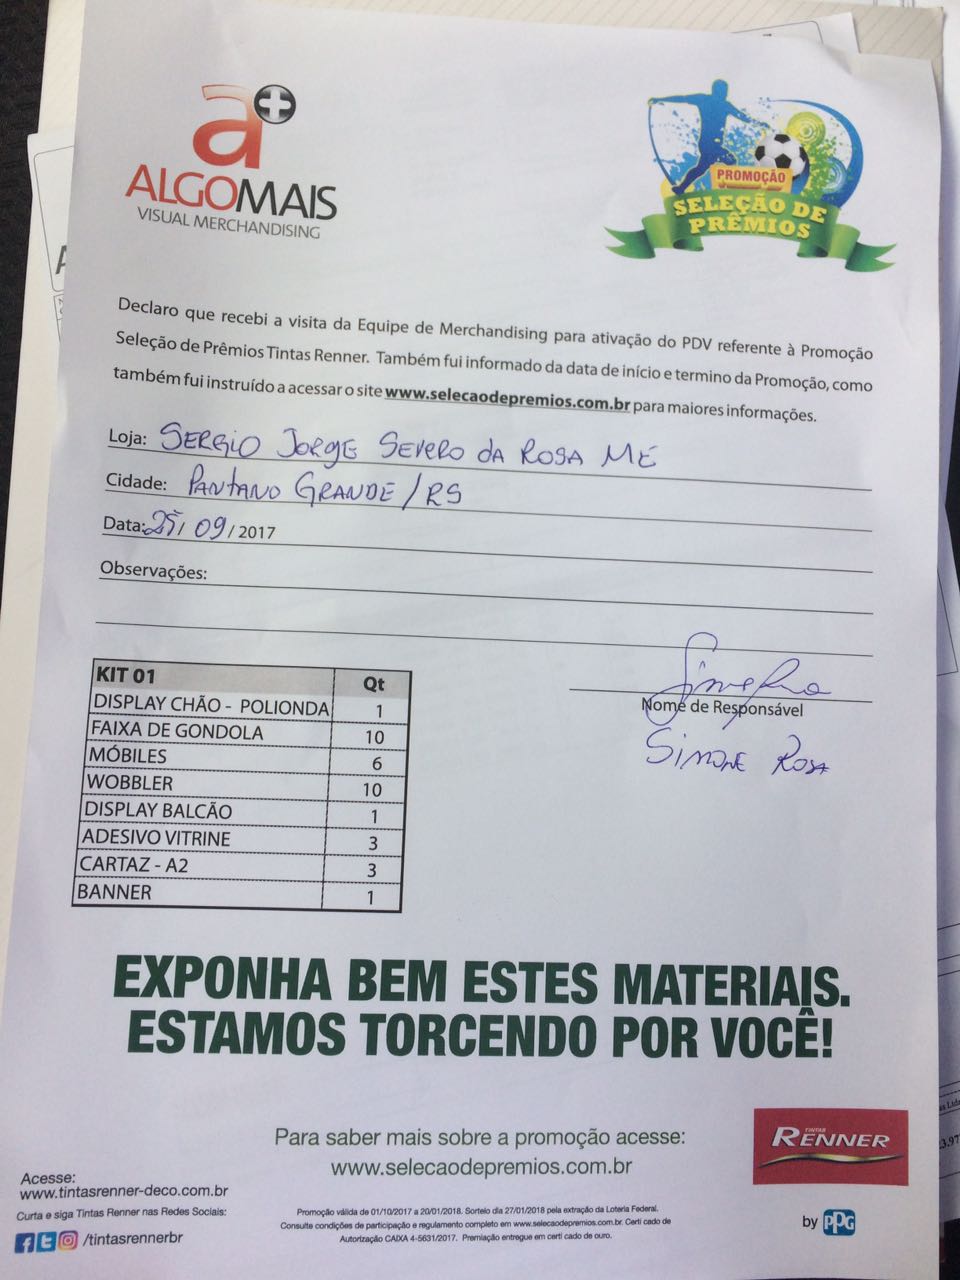 a+
ALGOMAIS
VISUAL MERCHANDISING
PROMOÇÃO
SELEÇÃO DE
PRÊMIOS
Declaro que recebi a visita da Equipe de Merchandising para ativação do PDV referente à Promoção
Seleção de Prêmios Tintas Renner. Também fui informado da data de início e termino da Promoção, como
também fui instruído a acessar o site www.selecaodepremios.com.br para maiores informações.
Loja: SERGIO JORGE SEVERO DA ROSA ME
Cidade: PANTANO GRANDE/RS
Data: 25/09/2017
Observações:
KIT 01 Qt
DISPLAY CHÃO - POLIONDA 1
FAIXA DE GONDOLA 10
MÓBILES 6
WOBBLER 10
DISPLAY BALCÃO 1
ADESIVO VITRINE 3
CARTAZ - A2 3
BANNER 1
Nome de Responsável
SIMONE ROSA
EXPONHA BEM ESTES MATERIAIS.
ESTAMOS TORCENDO POR VOCÊ!
Para saber mais sobre a promoção acesse:
www.selecaodepremios.com.br
TINTAS
RENNER
by PPG
Acesse:
www.tintasrenner-deco.com.br
Curta e siga Tintas Renner nas Redes Sociais:
/tintasrennerbr
Promoção válida de 01/10/2017 a 20/01/2018. Sorteio dia 27/01/2018 pela extração da Loteria Federal.
Consulte condições de participação e regulamento completo em www.selecaodepremios.com.br. Certi cado de
Autorização CAIXA 4-5631/2017. Premiação entregue em certi cado de ouro.